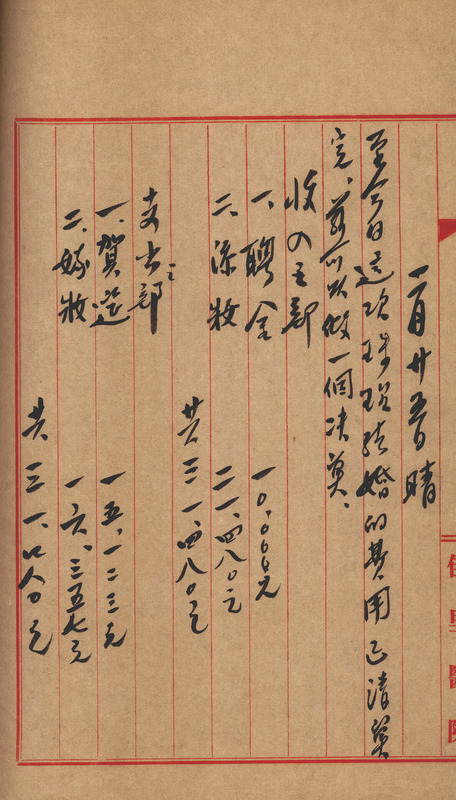 一月廿五日 晴
至今日這次珠結婚的費用已清算
完、茲可以做一個決算、
收入之部
一、聘金 一〇、〇〇〇元
二、添妝 二一、四八〇元
共三一、四八〇元
支出之部
一、賀送 一五、一二三元
二、嫁妝 一六、三五七元
共三一、四八〇元